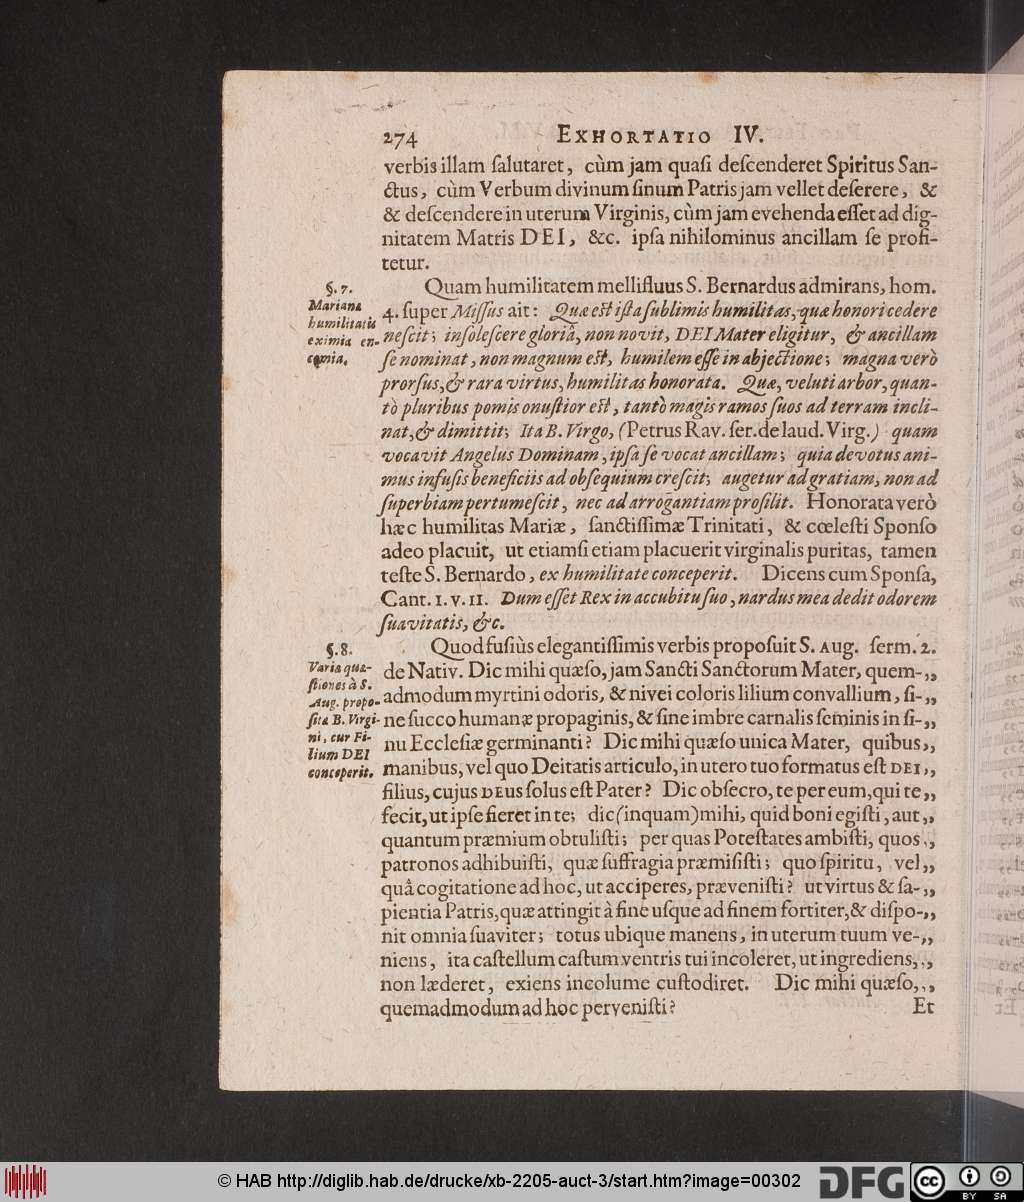 274 EXHORTATIO IV.
verbis illam ſalutaret, cùm jam quaſi deſcenderet Spiritus San-
ctus, cùm Verbum divinum ſinum Patris jam vellet deſerere, &
& deſcendere in uterum Virginis, cùm jam evehenda eſſet ad dig-
nitatem Matris DEI, &c. ipſa nihilominus ancillam ſe profi-
tetur.
§. 7.
Mariana
humilitatis
eximia en-
comia.
Quam humilitatem mellifluus S. Bernardus admirans, hom.
4. ſuper Miſſus ait: Quæ eſt iſta ſublimis humilitas, quæ honori cedere
neſcit; inſoleſcere gloriâ, non novit, DEI Mater eligitur, & ancillam
ſe nominat, non magnum eſt, humilem eſſe in abjectione; magna verò
prorſus, & rara virtus, humilitas honorata. Quæ, veluti arbor, quan-
tò pluribus pomis onuſtior eſt, tantò magis ramos ſuos ad terram incli-
nat, & dimittit; Ita B. Virgo, (Petrus Rav. ſer. de laud. Virg.) quam
vocavit Angelus Dominam, ipſa ſe vocat ancillam; quia devotus ani-
mus infuſis beneficiis ad obſequium creſcit; augetur ad gratiam, non ad
ſuperbiam pertumeſcit, nec ad arrogantiam proſilit. Honorata verò
hæc humilitas Mariæ, ſanctiſſimæ Trinitati, & cœleſti Sponſo
adeo placuit, ut etiamſi etiam placuerit virginalis puritas, tamen
teſte S. Bernardo, ex humilitate conceperit. Dicens cum Sponſa,
Cant. 1. v. 11. Dum eſſet Rex in accubitu ſuo, nardus mea dedit odorem
ſuavitatis, &c.
§. 8.
Varia quæ-
ſtiones à S.
Aug. propo-
ſitæ B. Virgi-
ni, cur Fi-
lium DEI
conceperit.
Quod fuſiùs elegantiſſimis verbis propoſuit S. Aug. ſerm. 2.
de Nativ. Dic mihi quæſo, jam Sancti Sanctorum Mater, quem-,,
admodum myrtini odoris, & nivei coloris lilium convallium, ſi-,,
ne ſucco humanæ propaginis, & ſine imbre carnalis ſeminis in ſi-,,
nu Eccleſiæ germinanti? Dic mihi quæſo unica Mater, quibus,,
manibus, vel quo Deitatis articulo, in utero tuo formatus eſt DEI,,
filius, cujus DEUS ſolus eſt Pater? Dic obſecro, te per eum, qui te,,
fecit, ut ipſe fieret in te; dic (inquam) mihi, quid boni egiſti, aut,,
quantum præmium obtuliſti; per quas Poteſtates ambiſti, quos,,
patronos adhibuiſti, quæ ſuffragia præmiſiſti; quo ſpiritu, vel,,
quâ cogitatione ad hoc, ut acciperes, præveniſti? ut virtus & ſa-,,
pientia Patris, quæ attingit à fine uſque ad finem fortiter, & diſpo-,,
nit omnia ſuaviter; totus ubique manens, in uterum tuum ve-,,
niens, ita caſtellum caſtum ventris tui incoleret, ut ingrediens,,,
non læderet, exiens incolume cuſtodiret. Dic mihi quæſo,,,
quemadmodum ad hoc perveniſti? Et
© HAB http://diglib.hab.de/drucke/xb-2205-auct-3/start.htm?image=00302
DFG
cc
BY SA